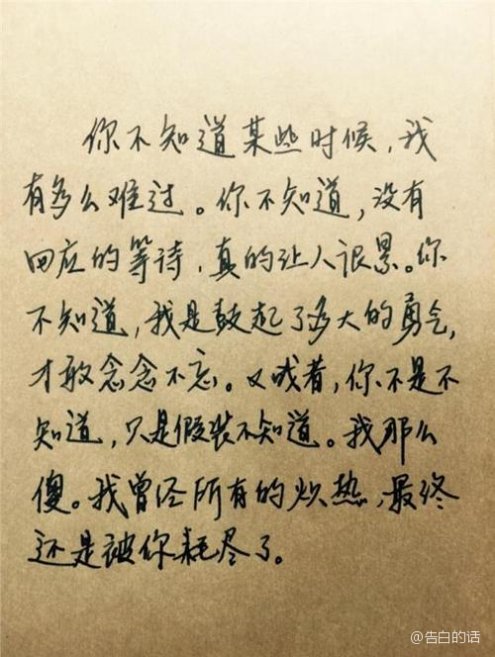 你不知道某些时候,我
有多么难过。你不知道,没有
回应的等待,真的让人很累。你
不知道,我是鼓起了多大的勇气,
才敢念念不忘。又或者,你不是不
知道,只是假装不知道。我那么
傻。我曾经所有的炽热,最终
还是被你耗尽了。
@告白的话